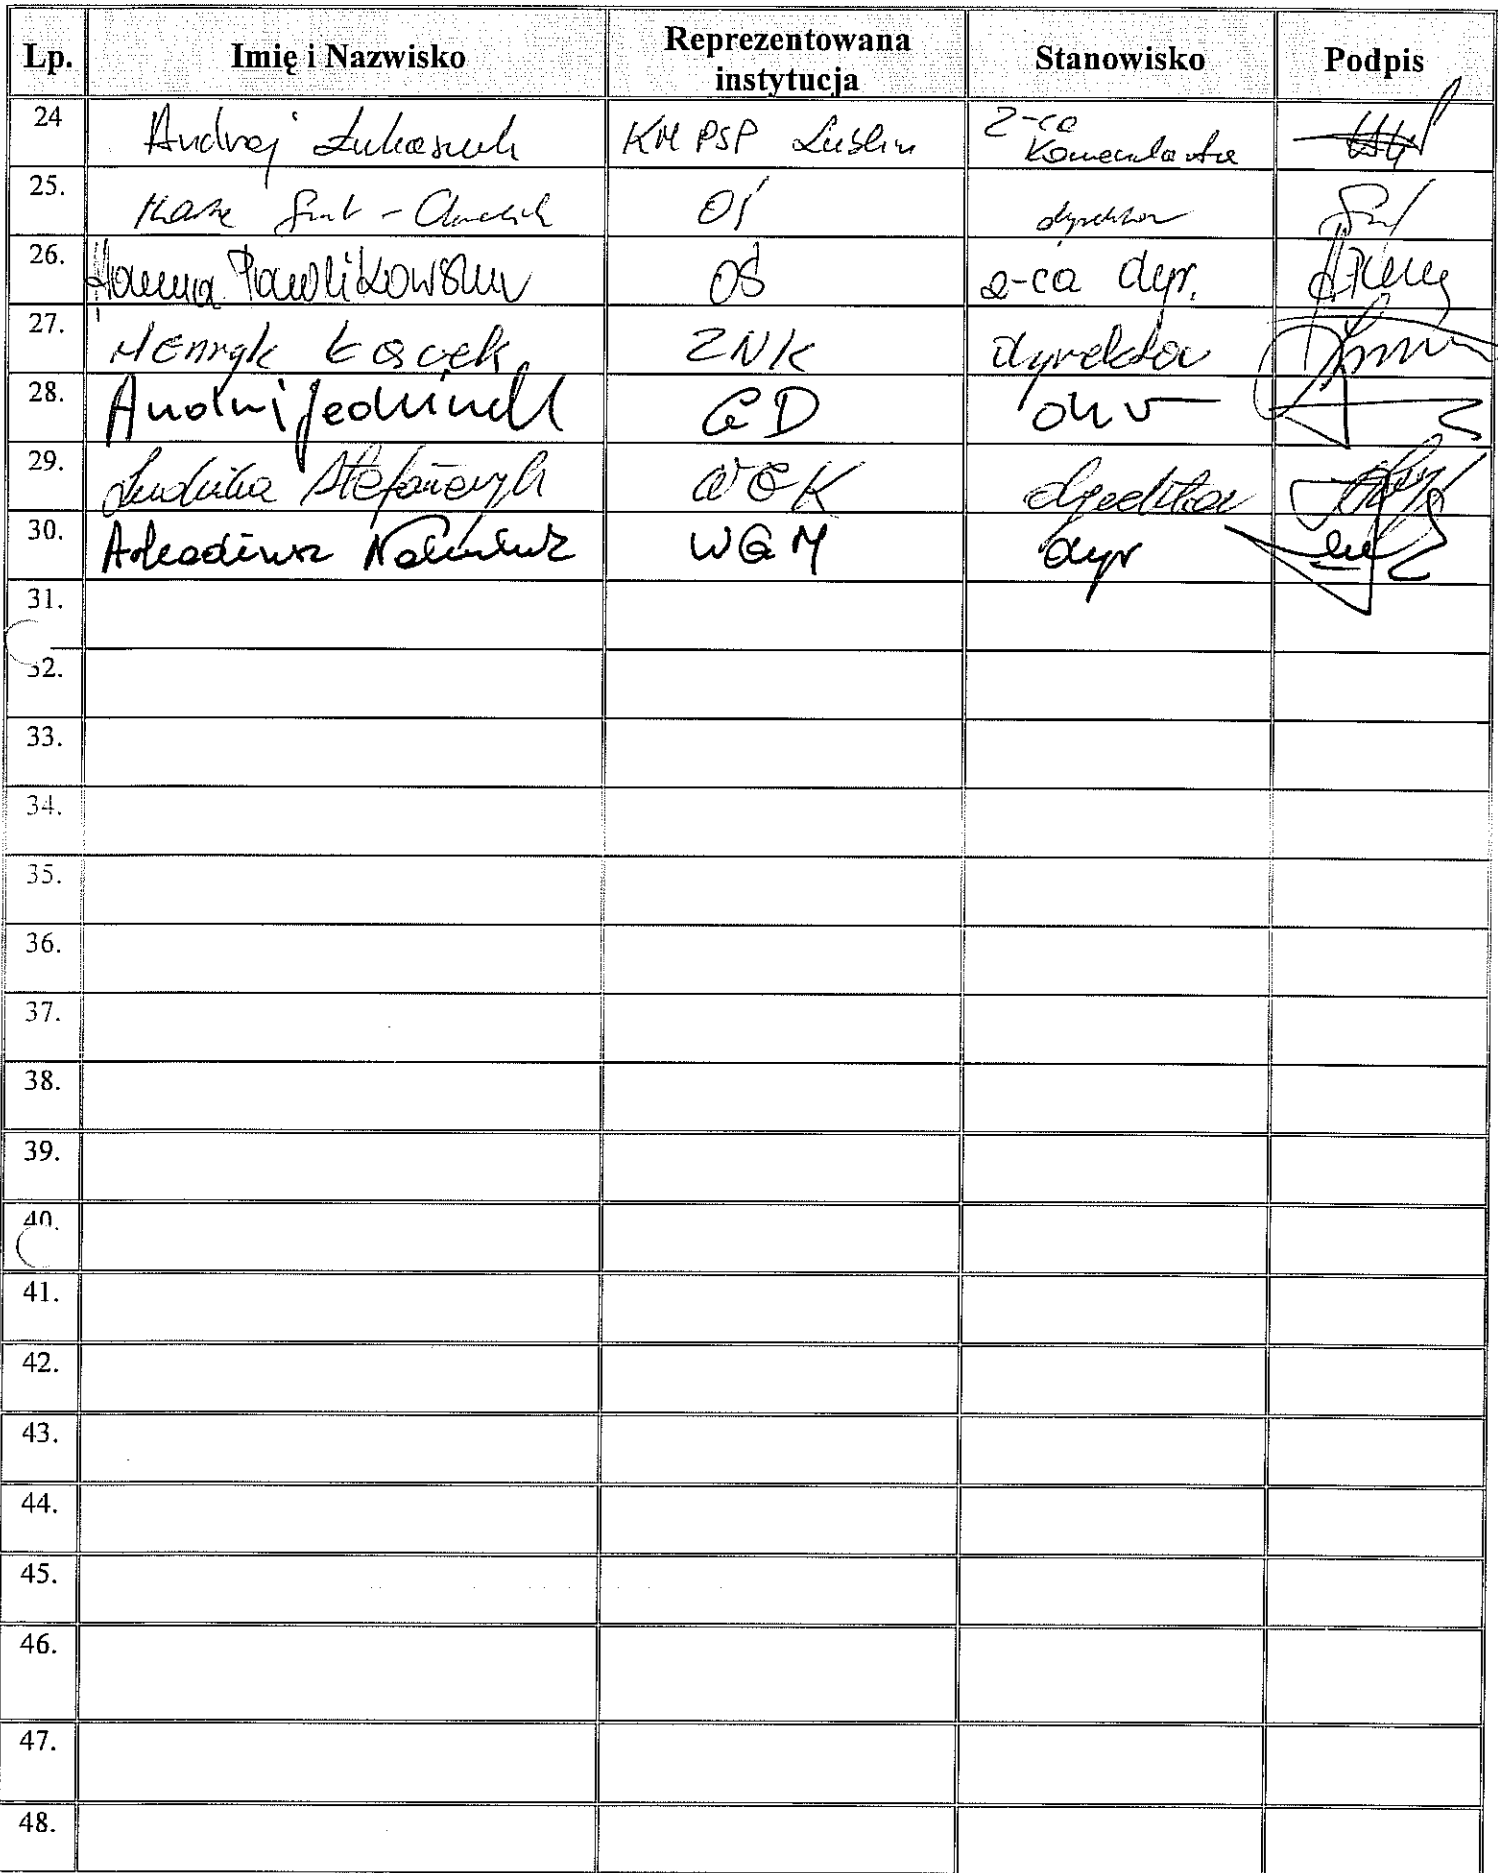 Lp. Imię i Nazwisko Reprezentowana instytucja Stanowisko Podpis
24 Andrzej Łukaszuk KM PSP Lublin Z-ca Komendanta
25. OŚ dyrektor
26. Hanna Pawlikowska OŚ z-ca dyr.
27. Henryk Łacek ZNK dyrektor
28. GD
29. Stefańczyk WOK dyrektor
30. Arkadiusz WGM dyr
31.
32.
33.
34.
35.
36.
37.
38.
39.
40.
41.
42.
43.
44.
45.
46.
47.
48.